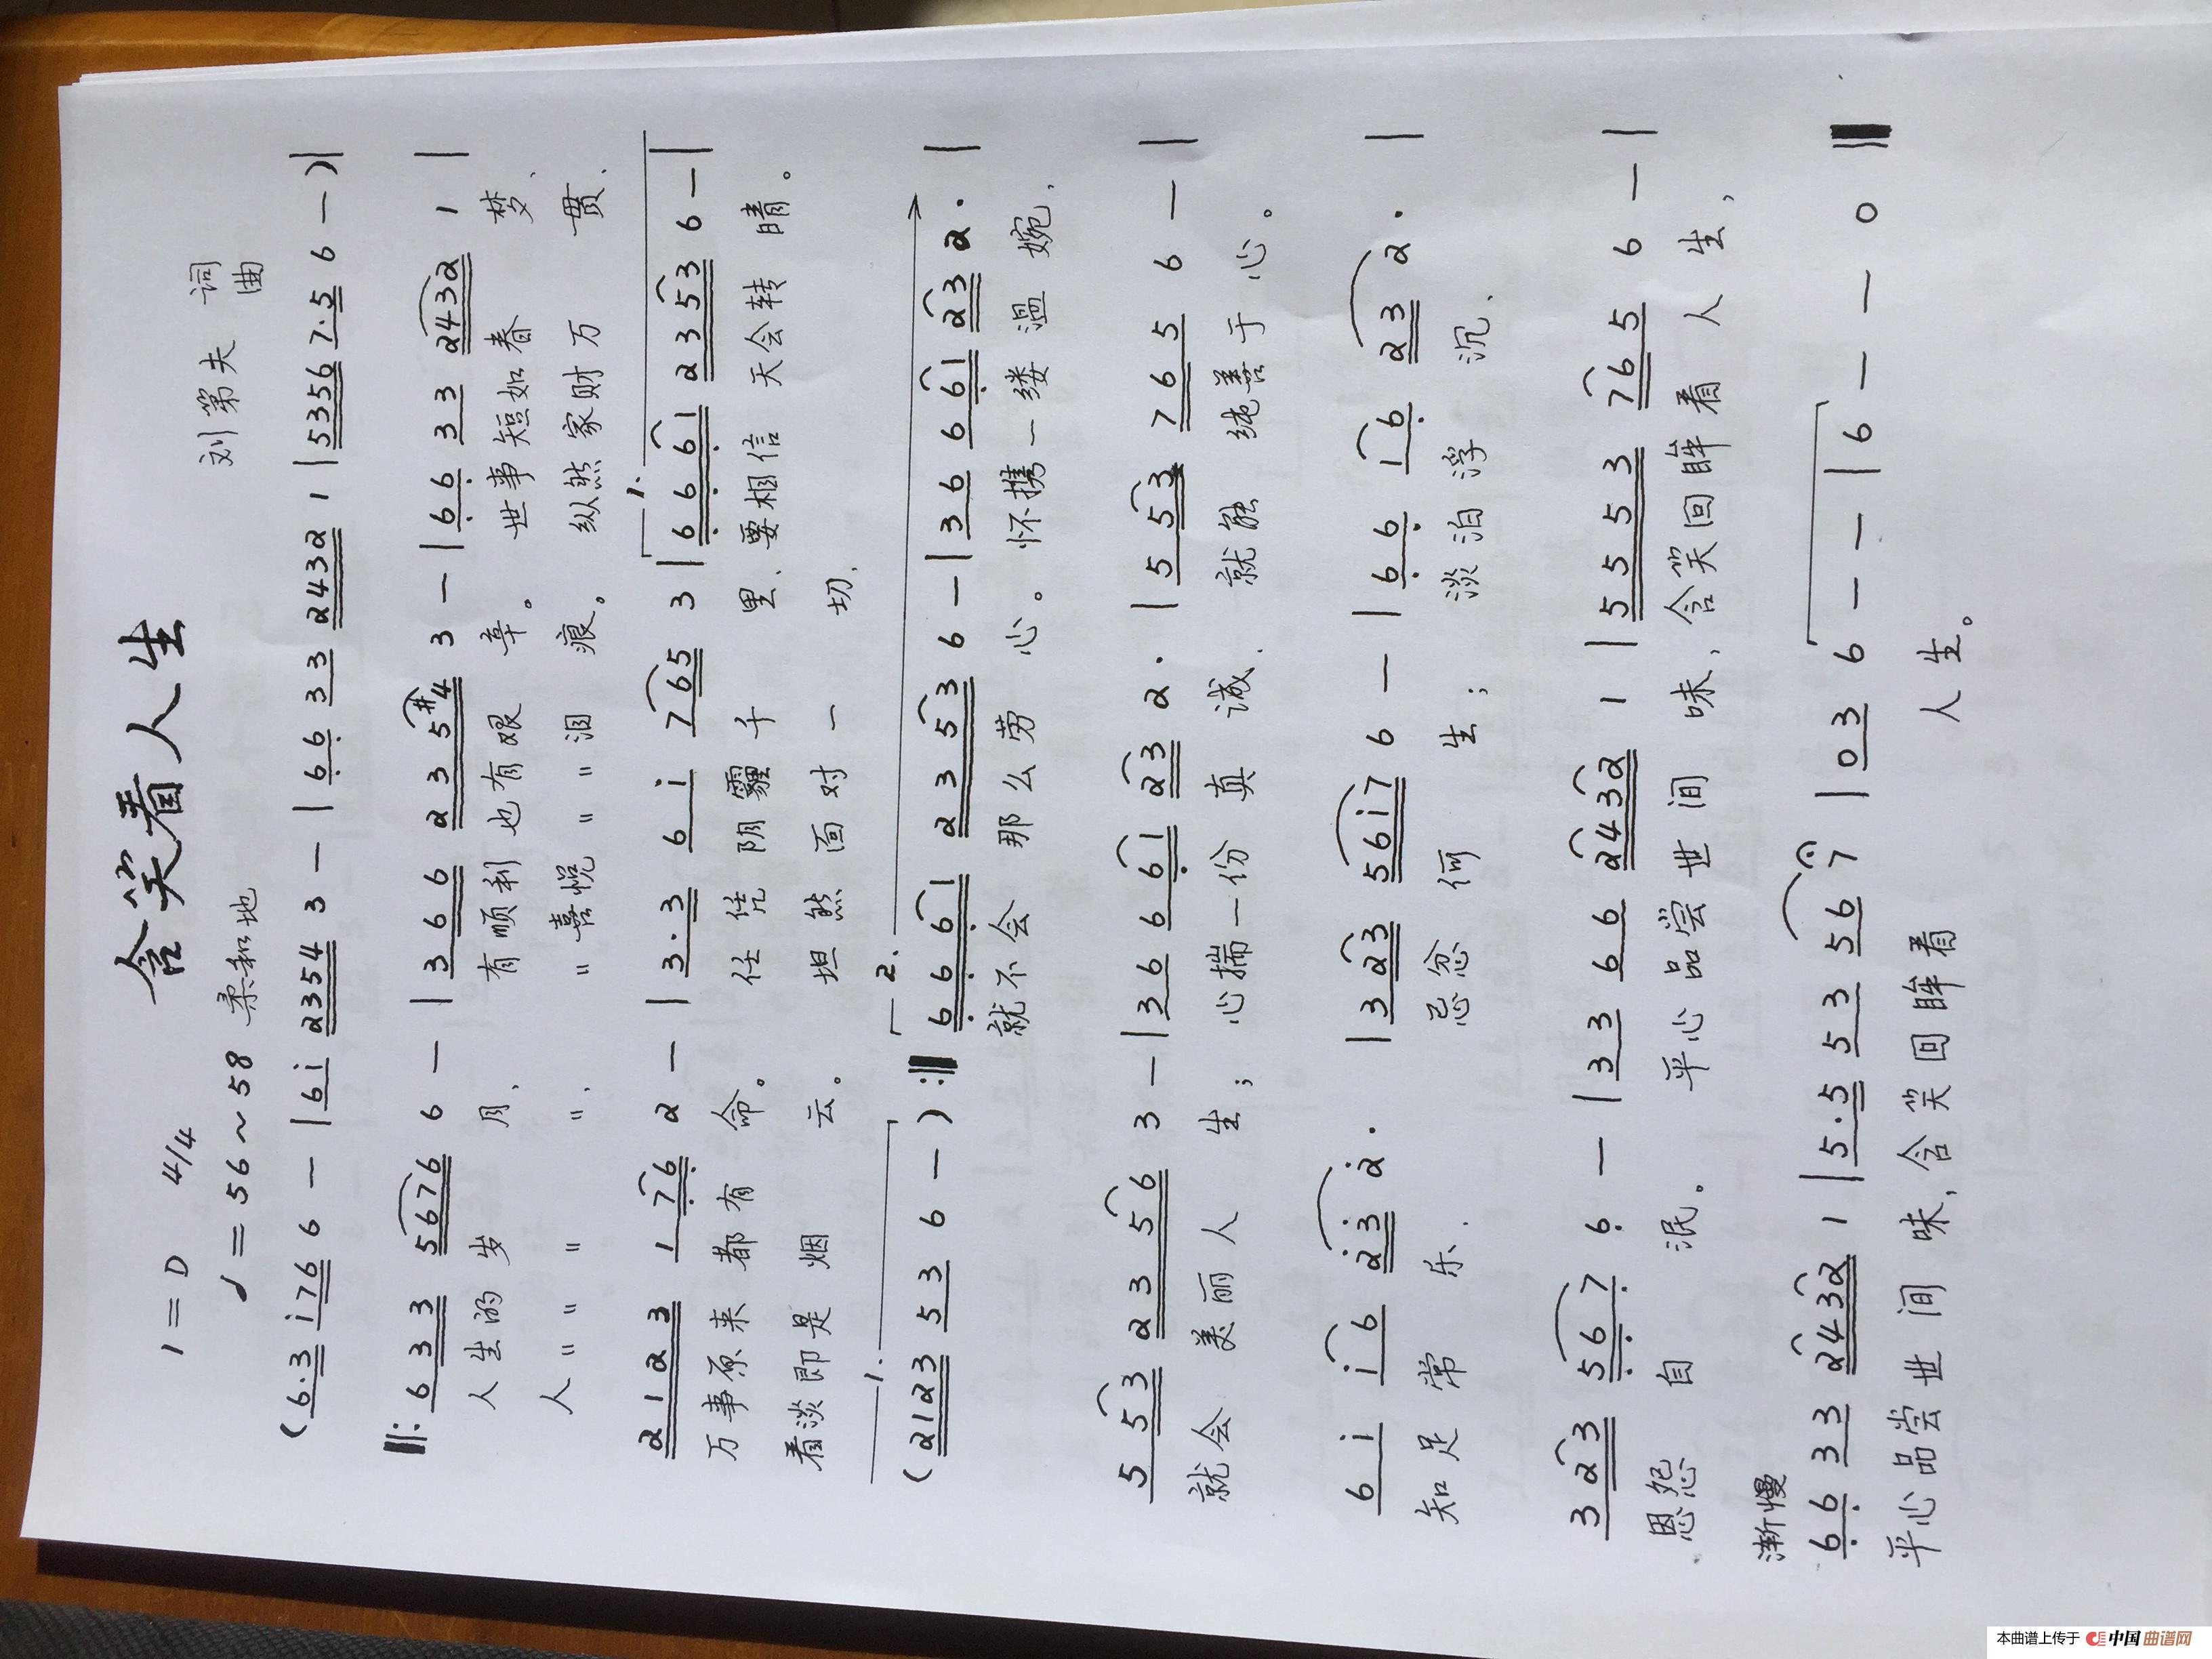 含笑看人生
1=D 4/4
刘第夫 词曲
♩=56~58 柔和地
(6·3 i76 6 — | 6i 2354 3 — | 66 33 2432 1 | 5356 7·5 6 —)|
‖: 6 33 5676 6 — | 3 66 2 3 5#4 3 — | 66 33 2432 1 |
人生的岁月、 有顺利也有艰辛。 世事短如春梦、
人 〃 〃 〃 〃、 〃 喜悦 〃 〃 泪痕。 纵然家财万贯、
2123 1 76 2 — | 3·3 6 i 765 3 | 1. 6 6 61 2 353 6 — |
万事原来都有命。 任凭阴霾千里、 要相信天会转晴。
看淡即是烟云。 坦然面对一切、
1. (2123 53 6 —) :‖ 2. 6 6 61 2 3 53 6 — | 36 6 61 23 2· |
就不会那么劳心。 怀携一缕温婉,
5 53 2 3 56 3 — | 36 6 61 23 2· | 5 553 765 6 — |
就会美丽人生; 心揣一份真诚、 就能纯善于心。
6 i i6 23 2· | 3 23 56i7 6 — | 66 i6 23 2· |
知足常乐、 忌忿何生; 淡泊浮沉、
3 23 567 6 — | 33 66 2432 1 | 5 5 5 3 765 6 — |
恩怨自泯。 平心品尝世间味, 含笑回眸看人生,
渐慢
66 33 2432 1 | 5·5 53 56 7 | 03 6 — — | 6 — — 0 ‖
平心品尝世间味, 含笑回眸看人生。
本曲谱上传于 中国曲谱网